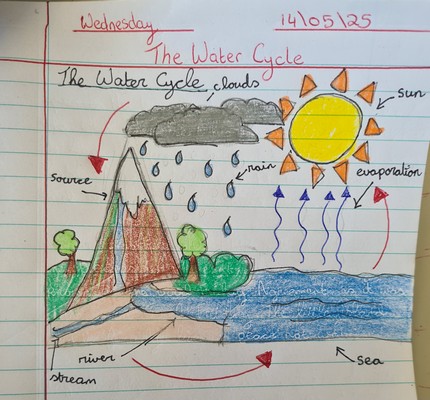 Wednesday 14/05/25
The Water Cycle
The Water Cycle
clouds
sun
rain
evaporation
source
river
stream
sea